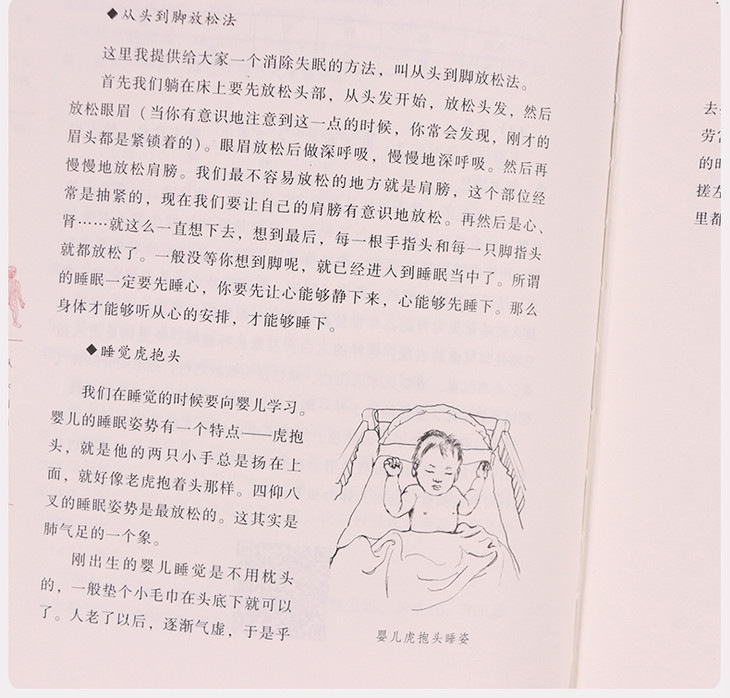 ◆从头到脚放松法
这里我提供给大家一个消除失眠的方法，叫从头到脚放松法。
首先我们躺在床上要先放松头部，从头发开始，放松头发，然后
放松眼眉（当你有意识地注意到这一点的时候，你常会发现，刚才的
眉头都是紧锁着的）。眼眉放松后做深呼吸，慢慢地深呼吸。然后再
慢慢地放松肩膀。我们最不容易放松的地方就是肩膀，这个部位经
常是抽紧的，现在我们要让自己的肩膀有意识地放松。再然后是心、
肾……就这么一直想下去，想到最后，每一根手指头和每一只脚指头
就都放松了。一般没等你想到脚呢，就已经进入到睡眠当中了。所谓
的睡眠一定要先睡心，你要先让心能够静下来，心能够先睡下。那么
身体才能够听从心的安排，才能够睡下。
◆睡觉虎抱头
我们在睡觉的时候要向婴儿学习。
婴儿的睡眠姿势有一个特点——虎抱
头，就是他的两只小手总是扬在上
面，就好像老虎抱着头那样。四仰八
叉的睡眠姿势是最放松的。这其实是
肺气足的一个象。
刚出生的婴儿睡觉是不用枕头
的，一般垫个小毛巾在头底下就可以
了。人老了以后，逐渐气虚，于是乎
婴儿虎抱头睡姿
去
劳
的时
搓左
里都